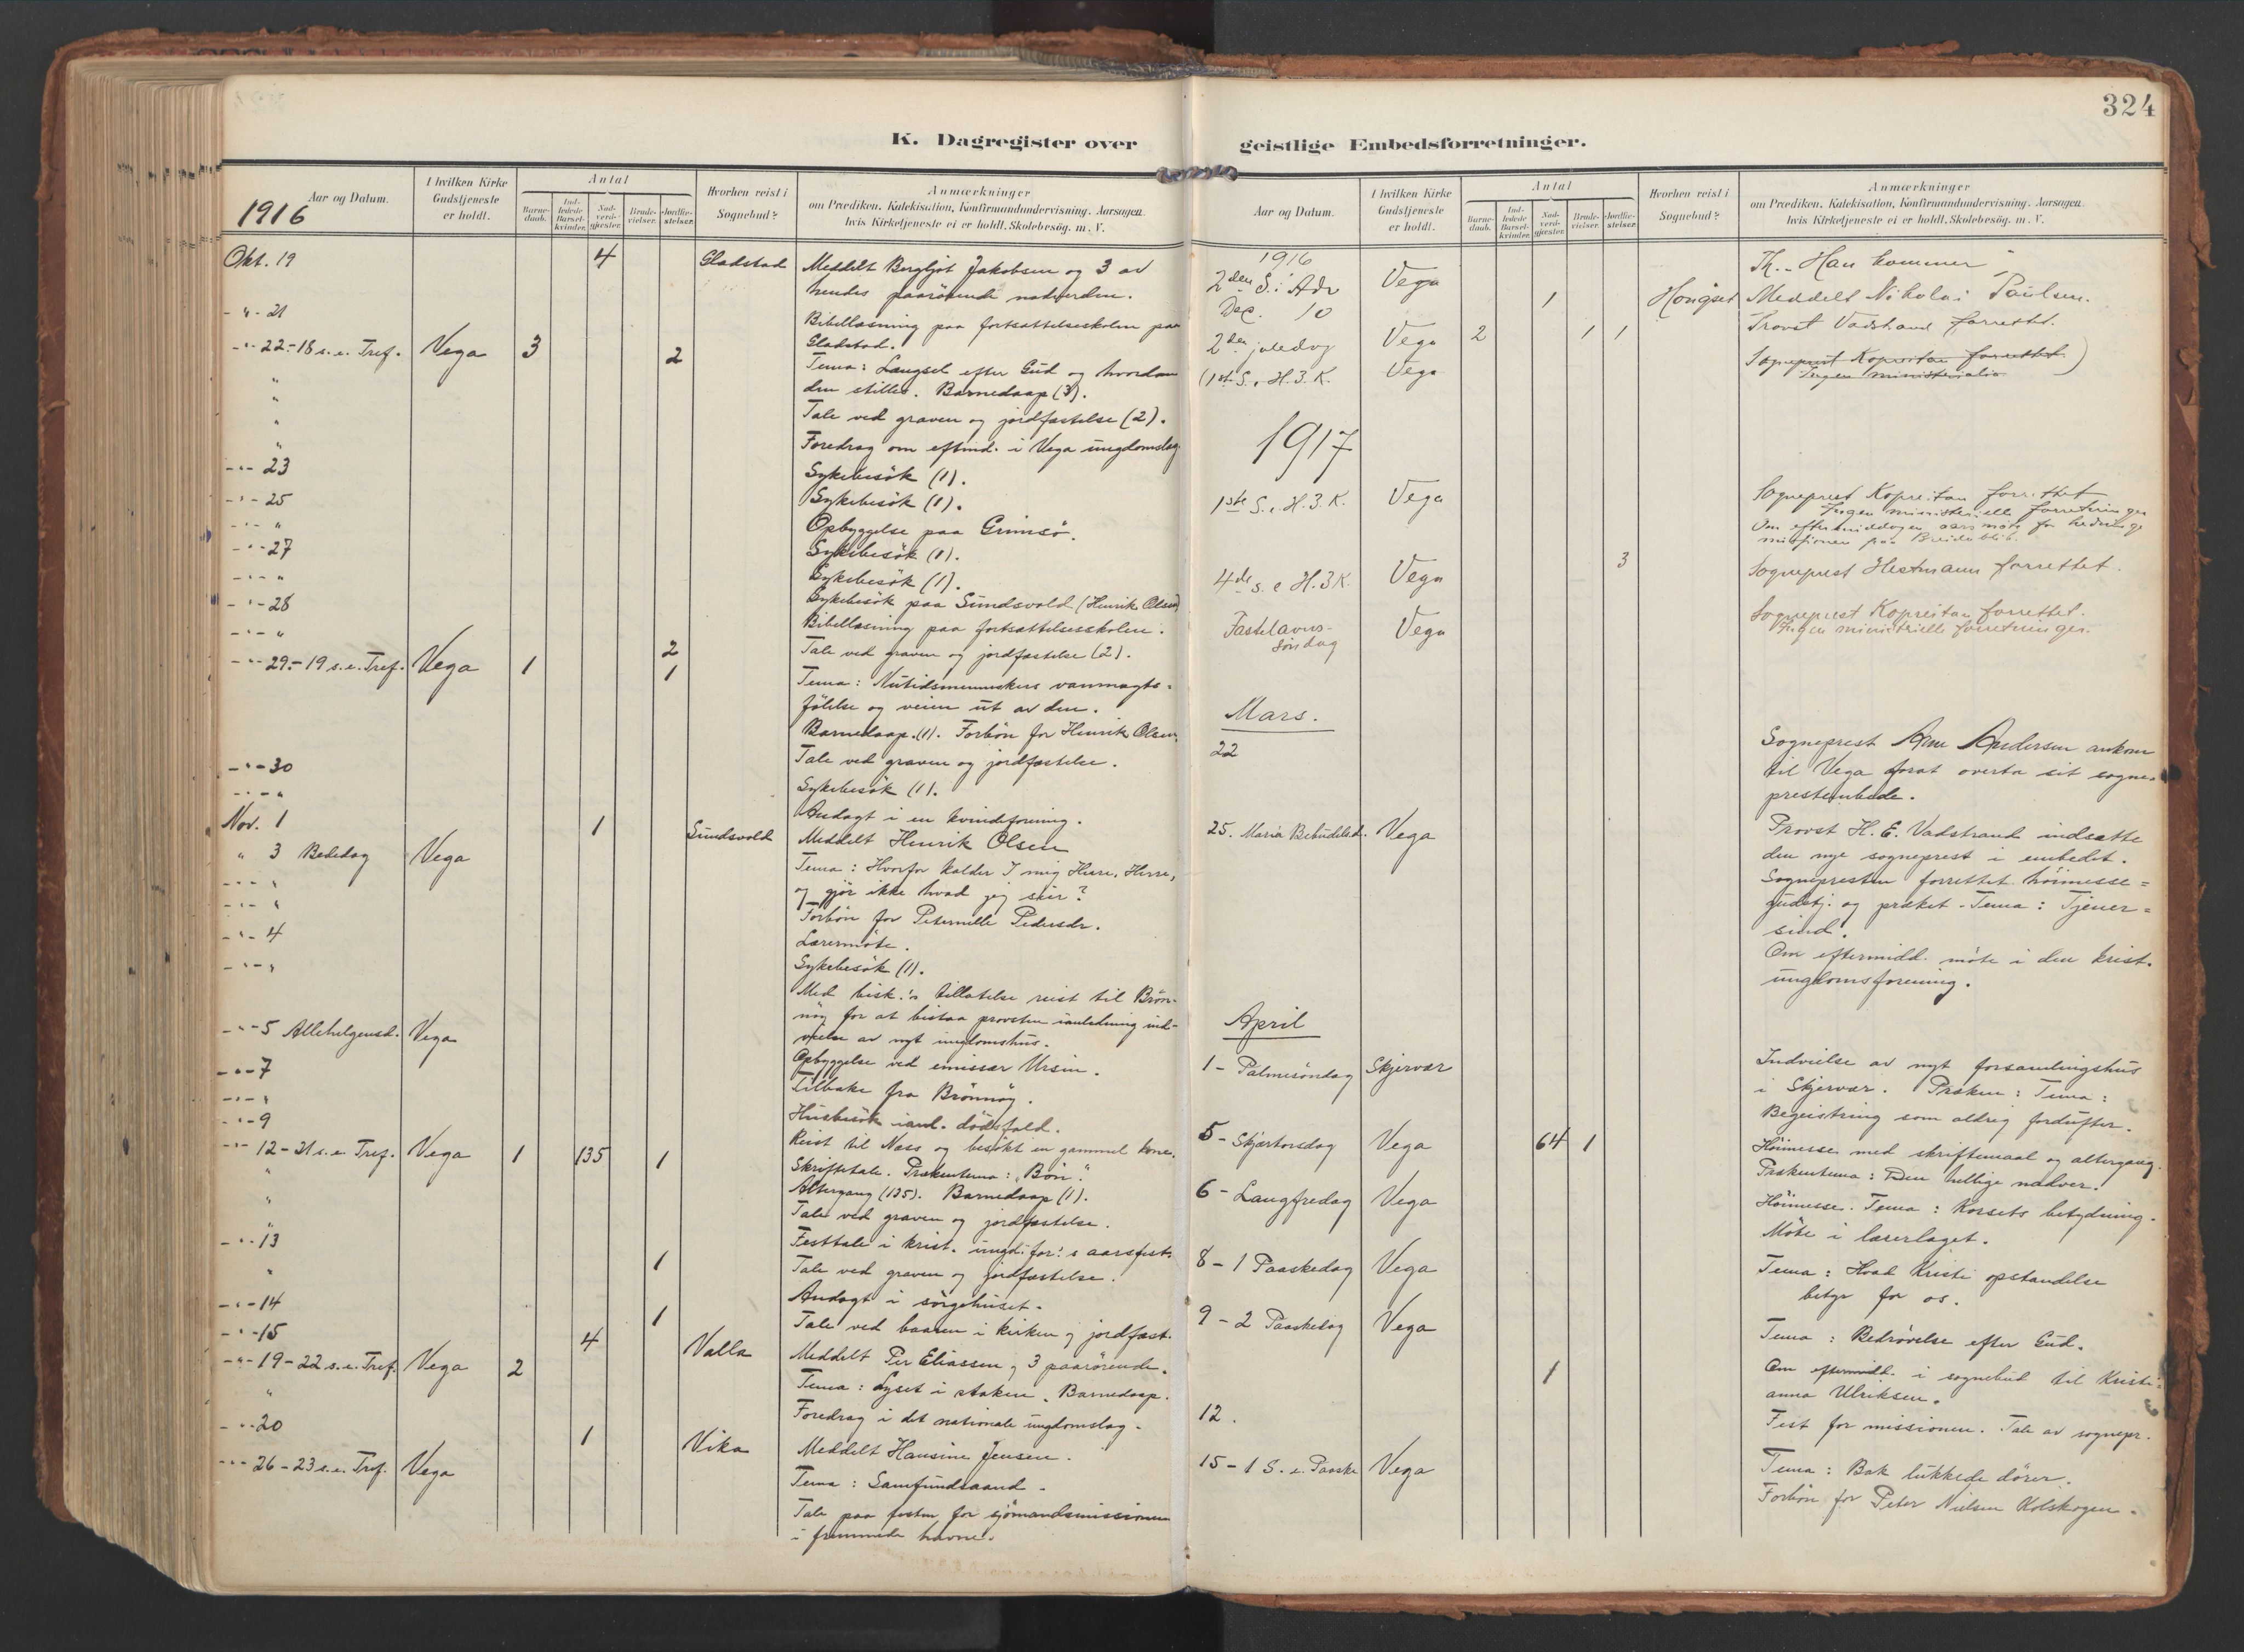 324
K. Dagregister over geistlige Embedsforretninger.
Aar og Datum.
1916
I hvilken Kirke Gudstjeneste er holdt.
Antal
Barne-daab.
Ind-ledede Barsel-kvinder.
Nad-verd-gjæster.
Brude-vielser.
Jordfæ-stelser.
Hvorhen reist i Sognebud?
Anmærkninger
om Prædiken, Katekisation, Konfirmandundervisning. Aarsagen
hvis Kirketjeneste ei er holdt. Skolebesög. m. V.
Okt. 19 4 Gladstad Meddelt Bergljot Jakobsen og 3 av
hendes paarörende nadverden.
- " - 21 Bibellæsning paa fortsættelsesskolen paa
Gladstad.
- " - 22.- 18 s. e. Tref. Vega 3 2 Tema: Længsel efter Gud og hvordan
den stilles. Barnedaap (3).
" Tale ved graven og jordfæstelse (2).
" Foredrag om eftmd. i Vega ungdomslag.
- " - 23 Sykebesök (1).
- " - 25 Sykebesök (1).
- " - " Opbyggelse paa Grimsö.
- " - 27 Sykebesök (1).
- " - " Sykebesök (1).
- " - 28 Sykebesök paa Sundsvold (Henrik Olsen)
- " - " Bibellæsning paa fortsættelsesskolen.
2 Tale ved graven og jordfæstelse (2).
- " - 29.- 19 s. e. Tref. Vega 1 1 Tema: Nutidsmenneskers vanmagts-
fölelse og veien ut av den.
Barnedaap. (1). Forbön for Henrik Olsen.
Tale ved graven og jordfæstelse.
- " - 30 Sykebesök (1).
- " - " Andagt i en kvindeforening.
Nov. 1 1 Sundsvold Meddelt Henrik Olsen
" 3 Bededag Vega Tema: Hvorfor kalder I mig Herre, Herre,
og gjör ikke hvad jeg sier?
Forbön for Peternille Pedersdr.
- " - " Lærermöte.
- " - 4 Sykebesök (1).
- " - " Med bisk.'s tillatelse reist til Brön-
nöy for at bistaa provsten i anledning ind-
vielse av nyt ungdomshus.
- " - 5 Allehelgensd. Vega Opbyggelse ved emissær Ursin.
- " - 7 Tilbake fra Brönnöy.
- " - " Husbesök i anl. dödsfald.
- " - 9 Reist til Næss og besökt en gammel kone.
- " - 12 - 21 s. e. Tref. Vega 1 135 1 Skriftetale. Prækentema: "Bön".
Altergang (135). Barnedaap (1).
" Tale ved graven og jordfæstelse.
" Festtale i krist. ungd. for.'s aarsfest.
- " - 13 1 Tale ved graven og jordfæstelse.
" Andagt i sörgehuset.
- " - 14 1 Tale ved baaren i kirken og jordfæst.
- " - 15 4 Valla Meddelt Per Eliassen og 3 paarörende.
- " - 19 - 22 s. e. Tref. Vega 2 Tema: Lyset i staken. Barnedaap.
" Foredrag i det nationale ungdomslag.
- " - 20 1 Vika Meddelt Hansine Jensen.
- " - 26 - 23 s. e. Tref. Vega Tema: Samfundsaand.
Tale paa festen for sjömandsmissionen
i fremmede havne.
Aar og Datum.
I hvilken Kirke Gudstjeneste er holdt.
Antal
Barne-daab.
Ind-ledede Barsel-kvinder.
Nad-verd-gjæster.
Brude-vielser.
Jordfæ-stelser.
Hvorhen reist i Sognebud?
Anmærkninger
om Prædiken, Katekisation, Konfirmandundervisning. Aarsagen
hvis Kirketjeneste ei er holdt. Skolebesög. m. V.
1916
2den S. i Adv Vega Th. "Han kommer"
Dec. 10 1 Hongset Meddelt Nikolai Paulsen.
2den juledag Vega 2 1 1 Provst Vadstrand forrettet.
(1ste S. e. H. 3. K. Vega Sogneprest Kopreitan forrettet.
Ingen ministerialia)
1917
1ste S. e. H. 3. K. Vega Sogneprest Kopreitan forrettet
Ingen ministerielle forretninger
Om eftermiddagen aarsmöte for hedninge
missionen paa Breidablik.
4de S. e H. 3 K. Vega 3 Sogneprest Hestmann forrettet.
Fastelavns-
söndag Vega Sogneprest Kopreitan forrettet.
Ingen ministerielle forretninger.
Mars.
22 Sogneprest Arne Andersen ankom
til Vega forat overta sit sogne-
presteembede.
25. Mariæ Bebudelsd. Vega Provst H. E. Vadstrand indsatte
den nye sogneprest i embedet.
Sognepresten forrettet höimesse-
gudstj. og præket - Tema: Tjener-
sind.
Om eftermidd. möte i den krist.
ungdomsforening.
April
1 - Palmesöndag Skjervær Indvielse av nyt forsamlingshus
i Skjervær. Præken: Tema:
Begeistring som aldrig fordufter.
5 - Skjærtorsdag Vega 64 1 Höimesse med skriftemaal og altergang.
Prækentema: Den hellige nadver.
6 - Langfredag Vega Höimesse. Tema: Korsets betydning.
Möte i lærerlaget.
8 - 1 Paaskedag Vega Tema: Hvad Kristi opstandelse
betyr for os.
9 - 2 Paaskedag Vega Tema: Bedrövelse efter Gud.
1 Om eftermidd. i sognebud til Kristi-
anna Ulriksen.
12. Fest for missionen. Tale av sognepr.
15 - 1 S. e. Paaske Vega Tema: Bak lukkede dörer.
Forbön for Peter Nielsen Kolskogen.